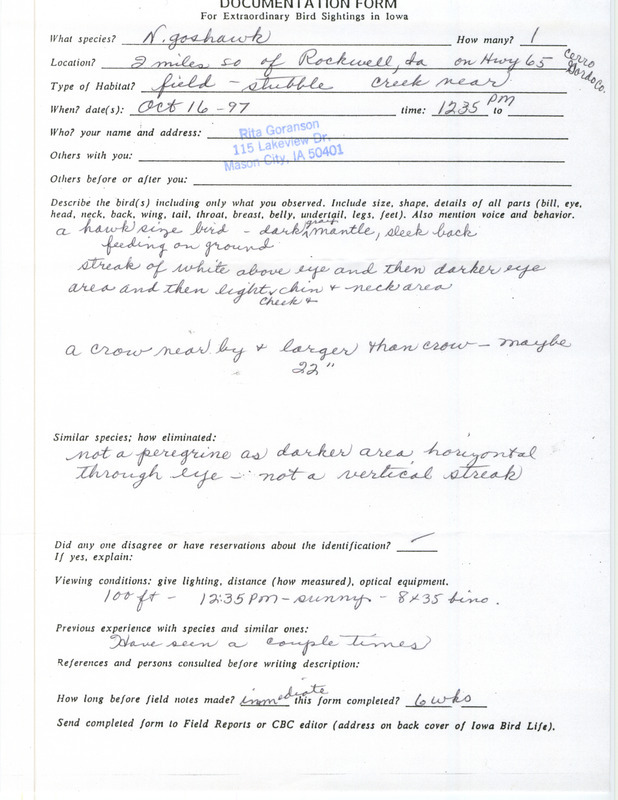 DOCUMENTATION FORM
For Extraordinary Bird Sightings in Iowa
What species? N. goshawk How many? 1
Location? 2 miles so of Rockwell, Ia on Hwy 65 Cerro Gordo Co.
Type of Habitat? field - stubble creek near
When? date(s): Oct 16-97 time: 1235 PM to
Who? your name and address: Rita Goranson
115 Lakeview Dr.
Mason City, IA 50401
Others with you:
Others before or after you:
Describe the bird(s) including only what you observed. Include size, shape, details of all parts (bill, eye,
head, neck, back, wing, tail, throat, breast, belly, undertail, legs, feet). Also mention voice and behavior.
a hawk size bird - dark gray mantle, sleek back
feeding on ground
streak of white above eye and then darker eye
area and then light cheek + chin + neck area
a crow near by + larger than crow - maybe
22"
Similar species; how eliminated:
not a peregrine as darker area horizontal
through eye - not a vertical streak
Did any one disagree or have reservations about the identification? -
If yes, explain:
Viewing conditions: give lighting, distance (how measured), optical equipment.
100 ft - 12:35 PM - sunny - 8x35 bino.
Previous experience with species and similar ones:
Have seen a couple times
References and persons consulted before writing description:
How long before field notes made? immediate this form completed? 6 wks
Send completed form to Field Reports or CBC editor (address on back cover of Iowa Bird Life).